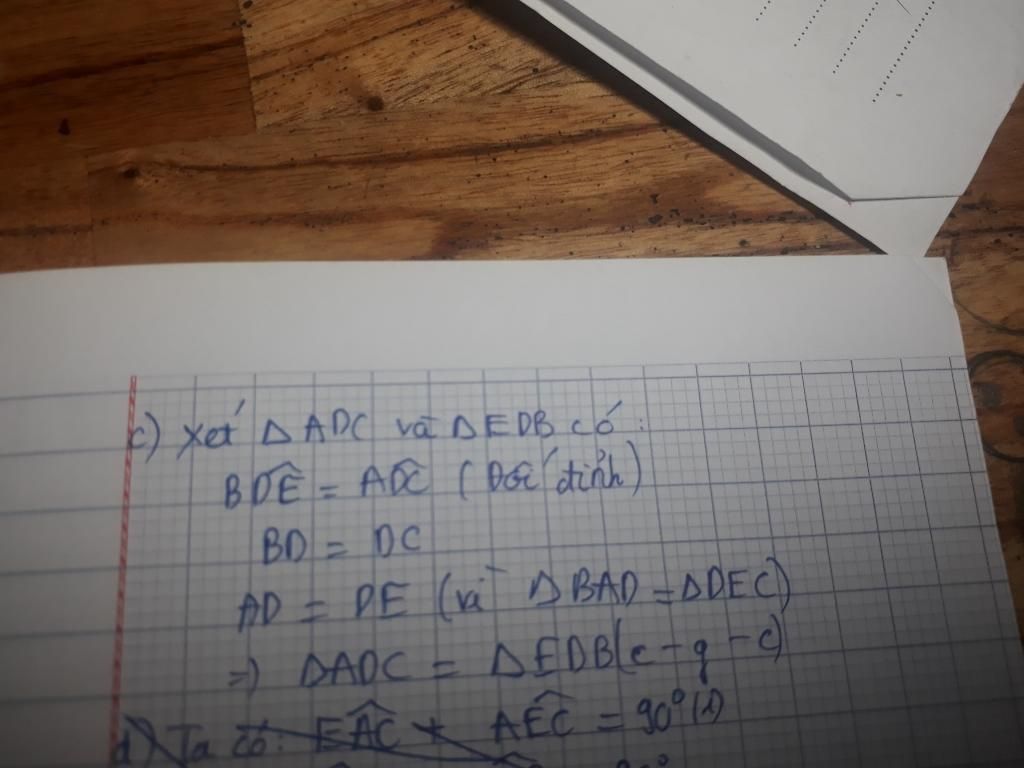 c) Xét Δ ADC và Δ EDB có:
BDE^ = ADC^ (Đối đỉnh)
BD = DC
AD = DE (và Δ BAD = Δ DEC)
=) ΔADC = ΔEDB (c-g-c)
d) Ta có: EAC^ + AEC^ = 90° (1)